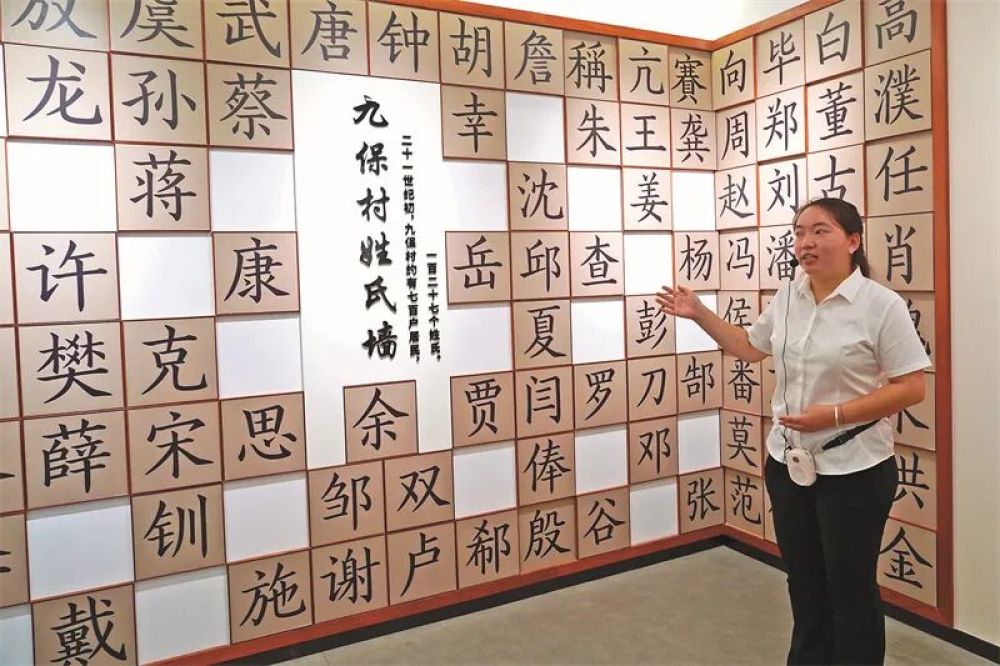 虞 武 唐 钟 胡 詹 稱 亢 賽 向 毕 白 高
龙 孙 蔡 幸 朱 王 龚 周 郑 董 濮
蒋 沈 姜 赵 刘 古 任
许 康 岳 邱 查 杨 冯 潘 肖
樊 克 夏 彭 侯
薛 宋 思 余 贾 闫 罗 刀 郜 番
钏 邹 双 俸 邓 莫
戴 施 谢 卢 郗 殷 谷 张 范 金
九保村姓氏墙
二十一世纪初，九保村约有七百户居民，
一百二十七个姓氏，